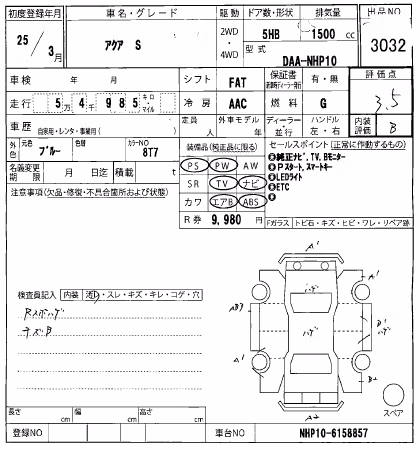 初度登録年月 車名・グレード 駆動 ドア数・形状 排気量 出品NO
25 / 3月 アクア S 2WD・4WD 5HB 1500 cc 3032
型式 DAA-NHP10
車検 年 月 シフト FAT 保証書 有・無 評価点
走行 5万4千985 キロ・マイル 冷房 AAC 燃料 G 3.5
車歴 自家用・レンタ・事業用( ) 定員 人 外車モデル 年 ディーラー・並行 ハンドル 左・右 内装評価 B
外色 元色 ブルー 色替 カラーNO 8T7
装備品(純正品に限る) セールスポイント(正常に作動するもの)
名義変更期限 月 日迄 積載 t
PS PW AW
SR TV ナビ
カワ エアB ABS
R券 9,980 円
①純正ナビ, TV, Bモニター
②Pスタート, スマートキー
③LEDライト
④ETC
⑤
注意事項(欠品・修復・不具合箇所および状態)
Fガラス トビ石・キズ・ヒビ・ワレ・リペア跡
検査員記入 内装 汚・スレ・キズ・キレ・コゲ・穴
Rスポハゲ
チズB
A1
A1
ハゲ
AB3
B1
ハゲ
A1
B2
ハゲ
A2
スペア
長さ cm 幅 cm 高さ cm
登録NO 車台NO NHP10-6158857